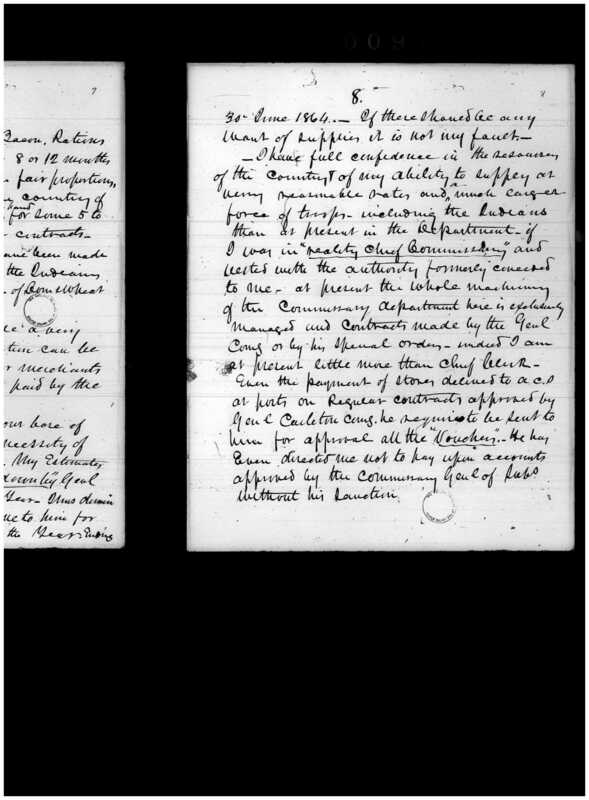 7
Bacon, Rations
8 or 12 months
fair proportions,
country of
hand
for some 5 to
contracts—
been made
the Indians
of Corn & Wheat
a very
can be
merchants
paid by the
our base of
necessity of
My Estimates
Genl
Year—
to him for
the Year Ending
8
8.
30" June 1864.— If there should be any
want of supplies it is not my fault—
— I have full confidence in the resources
of the country & of my ability to supply at
very reasonable rates and, much larger
force of troops— including the Indians
than at present in the Department— if
I was in "reality Chief Commissary," and
vested with the authority formerly conceded
to me— at present the whole machinery
of the Commissary department here is exclusively
managed and contracts made by the Genl
Comg or by his special orders— indeed I am
at present little more than chief clerk—
Even the payment of stores delivered to a C.S
at posts on Regular contracts approved by
Genl Carleton Comg. he requires to be sent to
him for approval all the "Vouchers"— He has
Even directed me not to pay upon accounts
approved by the Commissary Genl of Subs
without his sanction